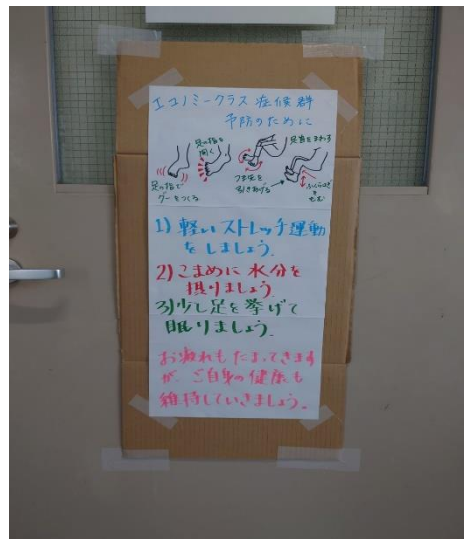 エコノミークラス症候群
予防のために
足の指で
グーをつくる
足の指を
開く
つま先を
引きあげる
足首をまわす
ふくらはぎを
もむ
1) 軽いストレッチ運動
をしましょう。
2) こまめに水分を
摂りましょう。
3) 少し足を挙げて
眠りましょう。
お疲れもたまってきます
が、ご自身の健康も
維持していきましょう。